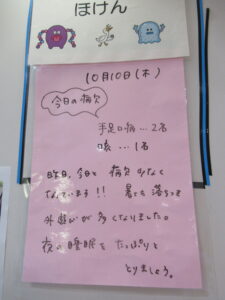 ほけん
10月10日(木)
今日の病欠
手足口病…2名
咳…1名
昨日、今日と病欠少なく
なっています!! 暑さも落ちつき
外遊びが多くなりました。
夜の睡眠をたっぷりと
とりましょう。